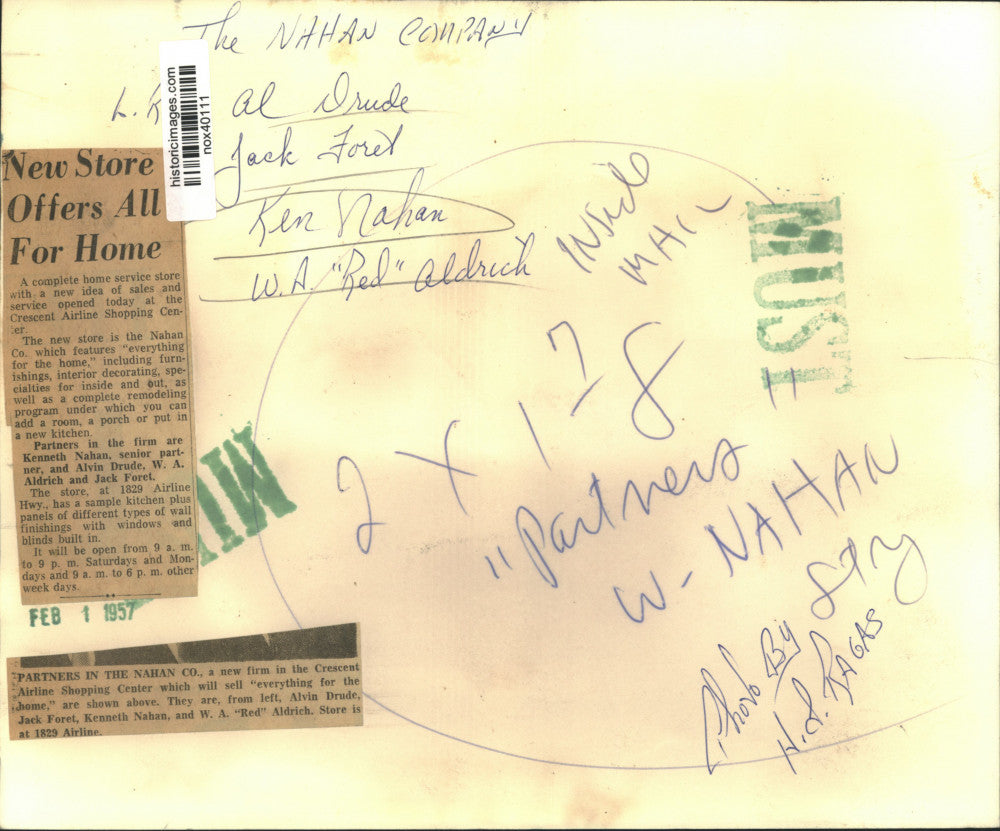 The NAHAN COMPANY
L.
Al Drude
Jack Foret
Ken Nahan
W.A. "Red" Aldrich
historicimages.com
nox40111
New Store
Offers All
For Home
A complete home service store
with a new idea of sales and
service opened today at the
Crescent Airline Shopping Cen-
ter.
The new store is the Nahan
Co. which features "everything
for the home," including furn-
ishings, interior decorating, spe-
cialties for inside and out, as
well as a complete remodeling
program under which you can
add a room, a porch or put in
a new kitchen.
Partners in the firm are
Kenneth Nahan, senior part-
ner, and Alvin Drude, W. A.
Aldrich and Jack Foret.
The store, at 1829 Airline
Hwy., has a sample kitchen plus
panels of different types of wall
finishings with windows and
blinds built in.
It will be open from 9 a. m.
to 9 p. m. Saturdays and Mon-
days and 9 a. m. to 6 p. m. other
week days.
FEB 1 1957
PARTNERS IN THE NAHAN CO., a new firm in the Crescent
Airline Shopping Center which will sell "everything for the
home," are shown above. They are, from left, Alvin Drude,
Jack Foret, Kenneth Nahan, and W. A. "Red" Aldrich. Store is
at 1829 Airline.
INSIDE
MAIL
MUST
2 X 1-7
8
"Partners"
W- NAHAN
Stry
Photo By
H.J. PAGAS